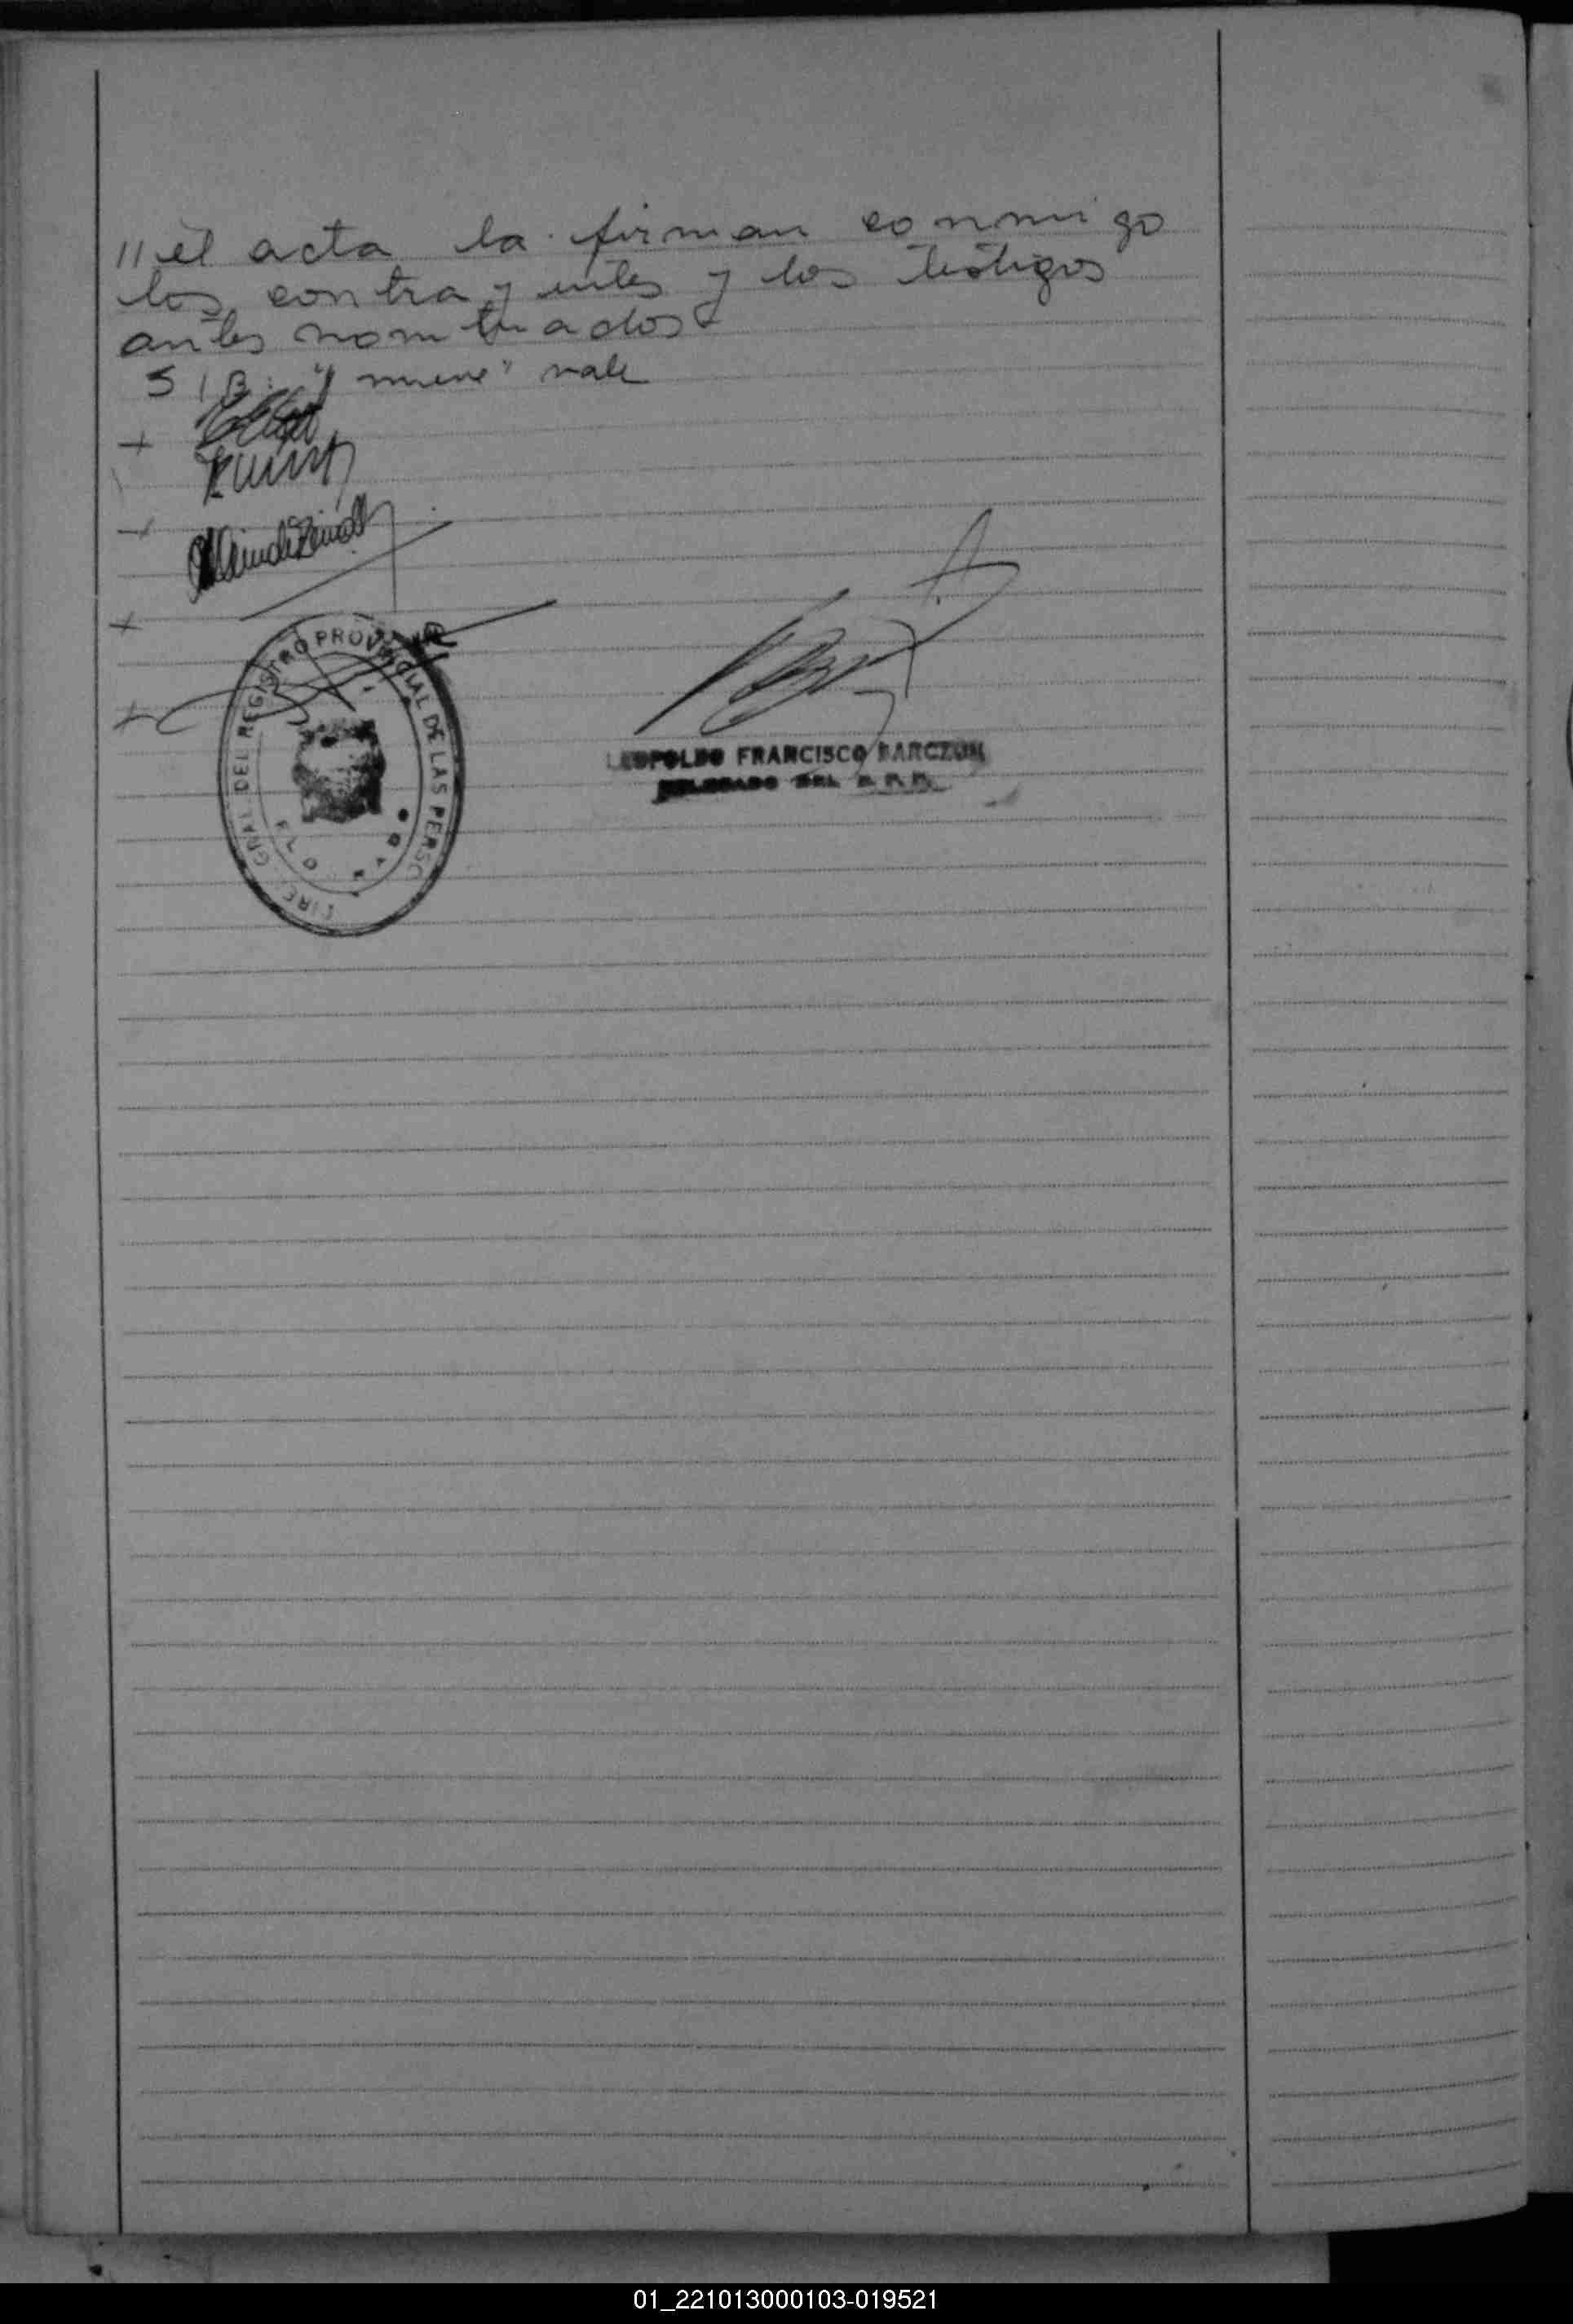 // el acta la firman conmigo
los contrayentes y los testigos
antes nombrados
S/B: "y nueve" vale
DIRE. GRAL DEL REGISTRO PROVINCIAL DE LAS PERSO
LEOPOLDO FRANCISCO BARCZUK
DELEGADO DEL R. P. P.
01_221013000103-019521